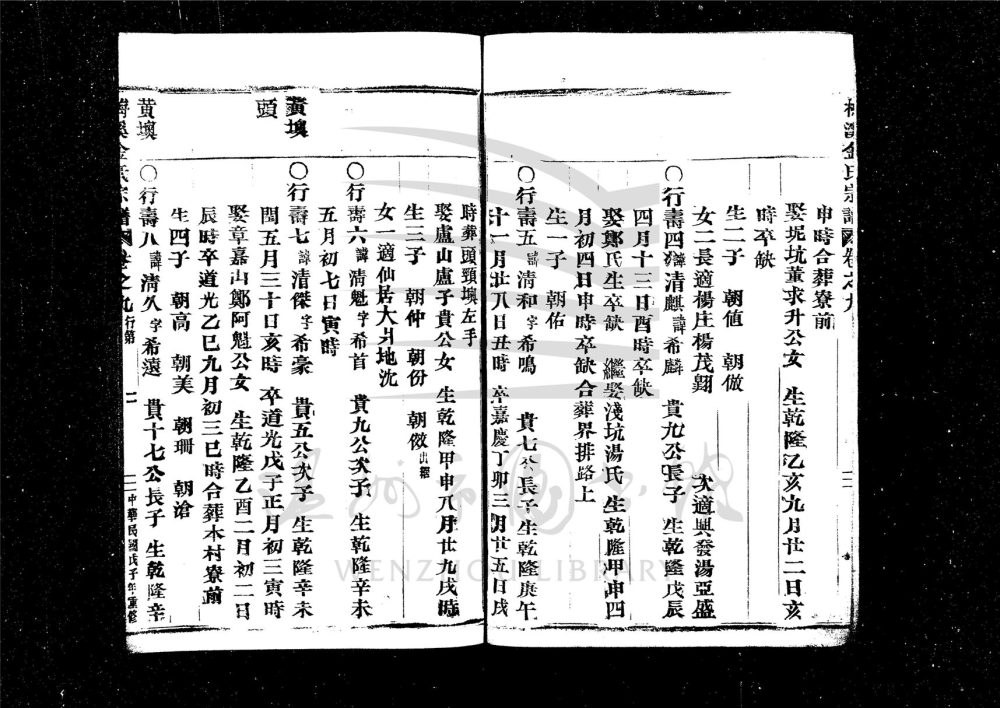 梅溪金氏宗譜 卷之九
申時合葬寮前
娶坭坑董求升公女 生乾隆乙亥九月廿二日亥
時卒缺
生二子 朝值 朝倣
女二長適楊庄楊茂翾 次適興發湯亞盛
〇行壽四 清麒諱希麟 貴九公長子 生乾隆戊辰
四月十三日酉時卒缺
娶鄭氏生卒缺 繼娶淺坑湯氏 生乾隆甲申四
月初四日申時卒缺合葬界排路上
生一子 朝佑
〇行壽五諱清和字希鳴 貴七公長子生乾隆庚午
十一月廿八日丑時 卒嘉慶丁卯三月廿五日戌
時葬頭頸壙左手
娶盧山盧子貴公女 生乾隆甲申八月廿九戌時
生三子 朝仲 朝份 朝傚出繼
女一適仙居大爿地沈
〇行壽六諱清魁字希首 貴九公次子 生乾隆辛未
五月初七日寅時
黃壙頭
〇行壽七諱清傑字希豪 貴五公次子 生乾隆辛未
閏五月三十日亥時 卒道光戊子正月初三寅時
娶章嘉山鄭阿魁公女 生乾隆乙酉二月初二日
辰時卒道光乙巳九月初三巳時合葬本村寮前
生四子 朝高 朝美 朝珊 朝滄
黃壙
〇行壽八諱清久字希遠 貴十七公長子 生乾隆辛
梅溪金氏宗譜 卷之九 行第 二 中華民國戊子年重修
WENZHOU LIBRARY